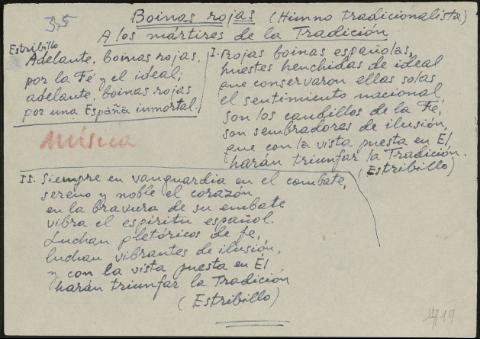 35
Boinas rojas (Himno tradicionalista)
A los mártires de la Tradición
Estribillo
Adelante, boinas rojas,
por la Fé y el ideal;
adelante, boinas rojas
por una España inmortal.
Música
I. Rojas boinas españolas,
huestes henchidas de ideal
que conservaron ellas solas
el sentimiento nacional,
son los caudillos de la Fé,
son sembradoras de ilusión,
que con la vista puesta en Él
harán triunfar la Tradición.
(Estribillo)
II. Siempre en vanguardia en el combate,
sereno y noble el corazón
en la bravura de su embate
vibra el espíritu español.
Luchan pletóricos de fe,
luchan vibrantes de ilusión,
y con la vista puesta en Él
harán triunfar la Tradición
(Estribillo)